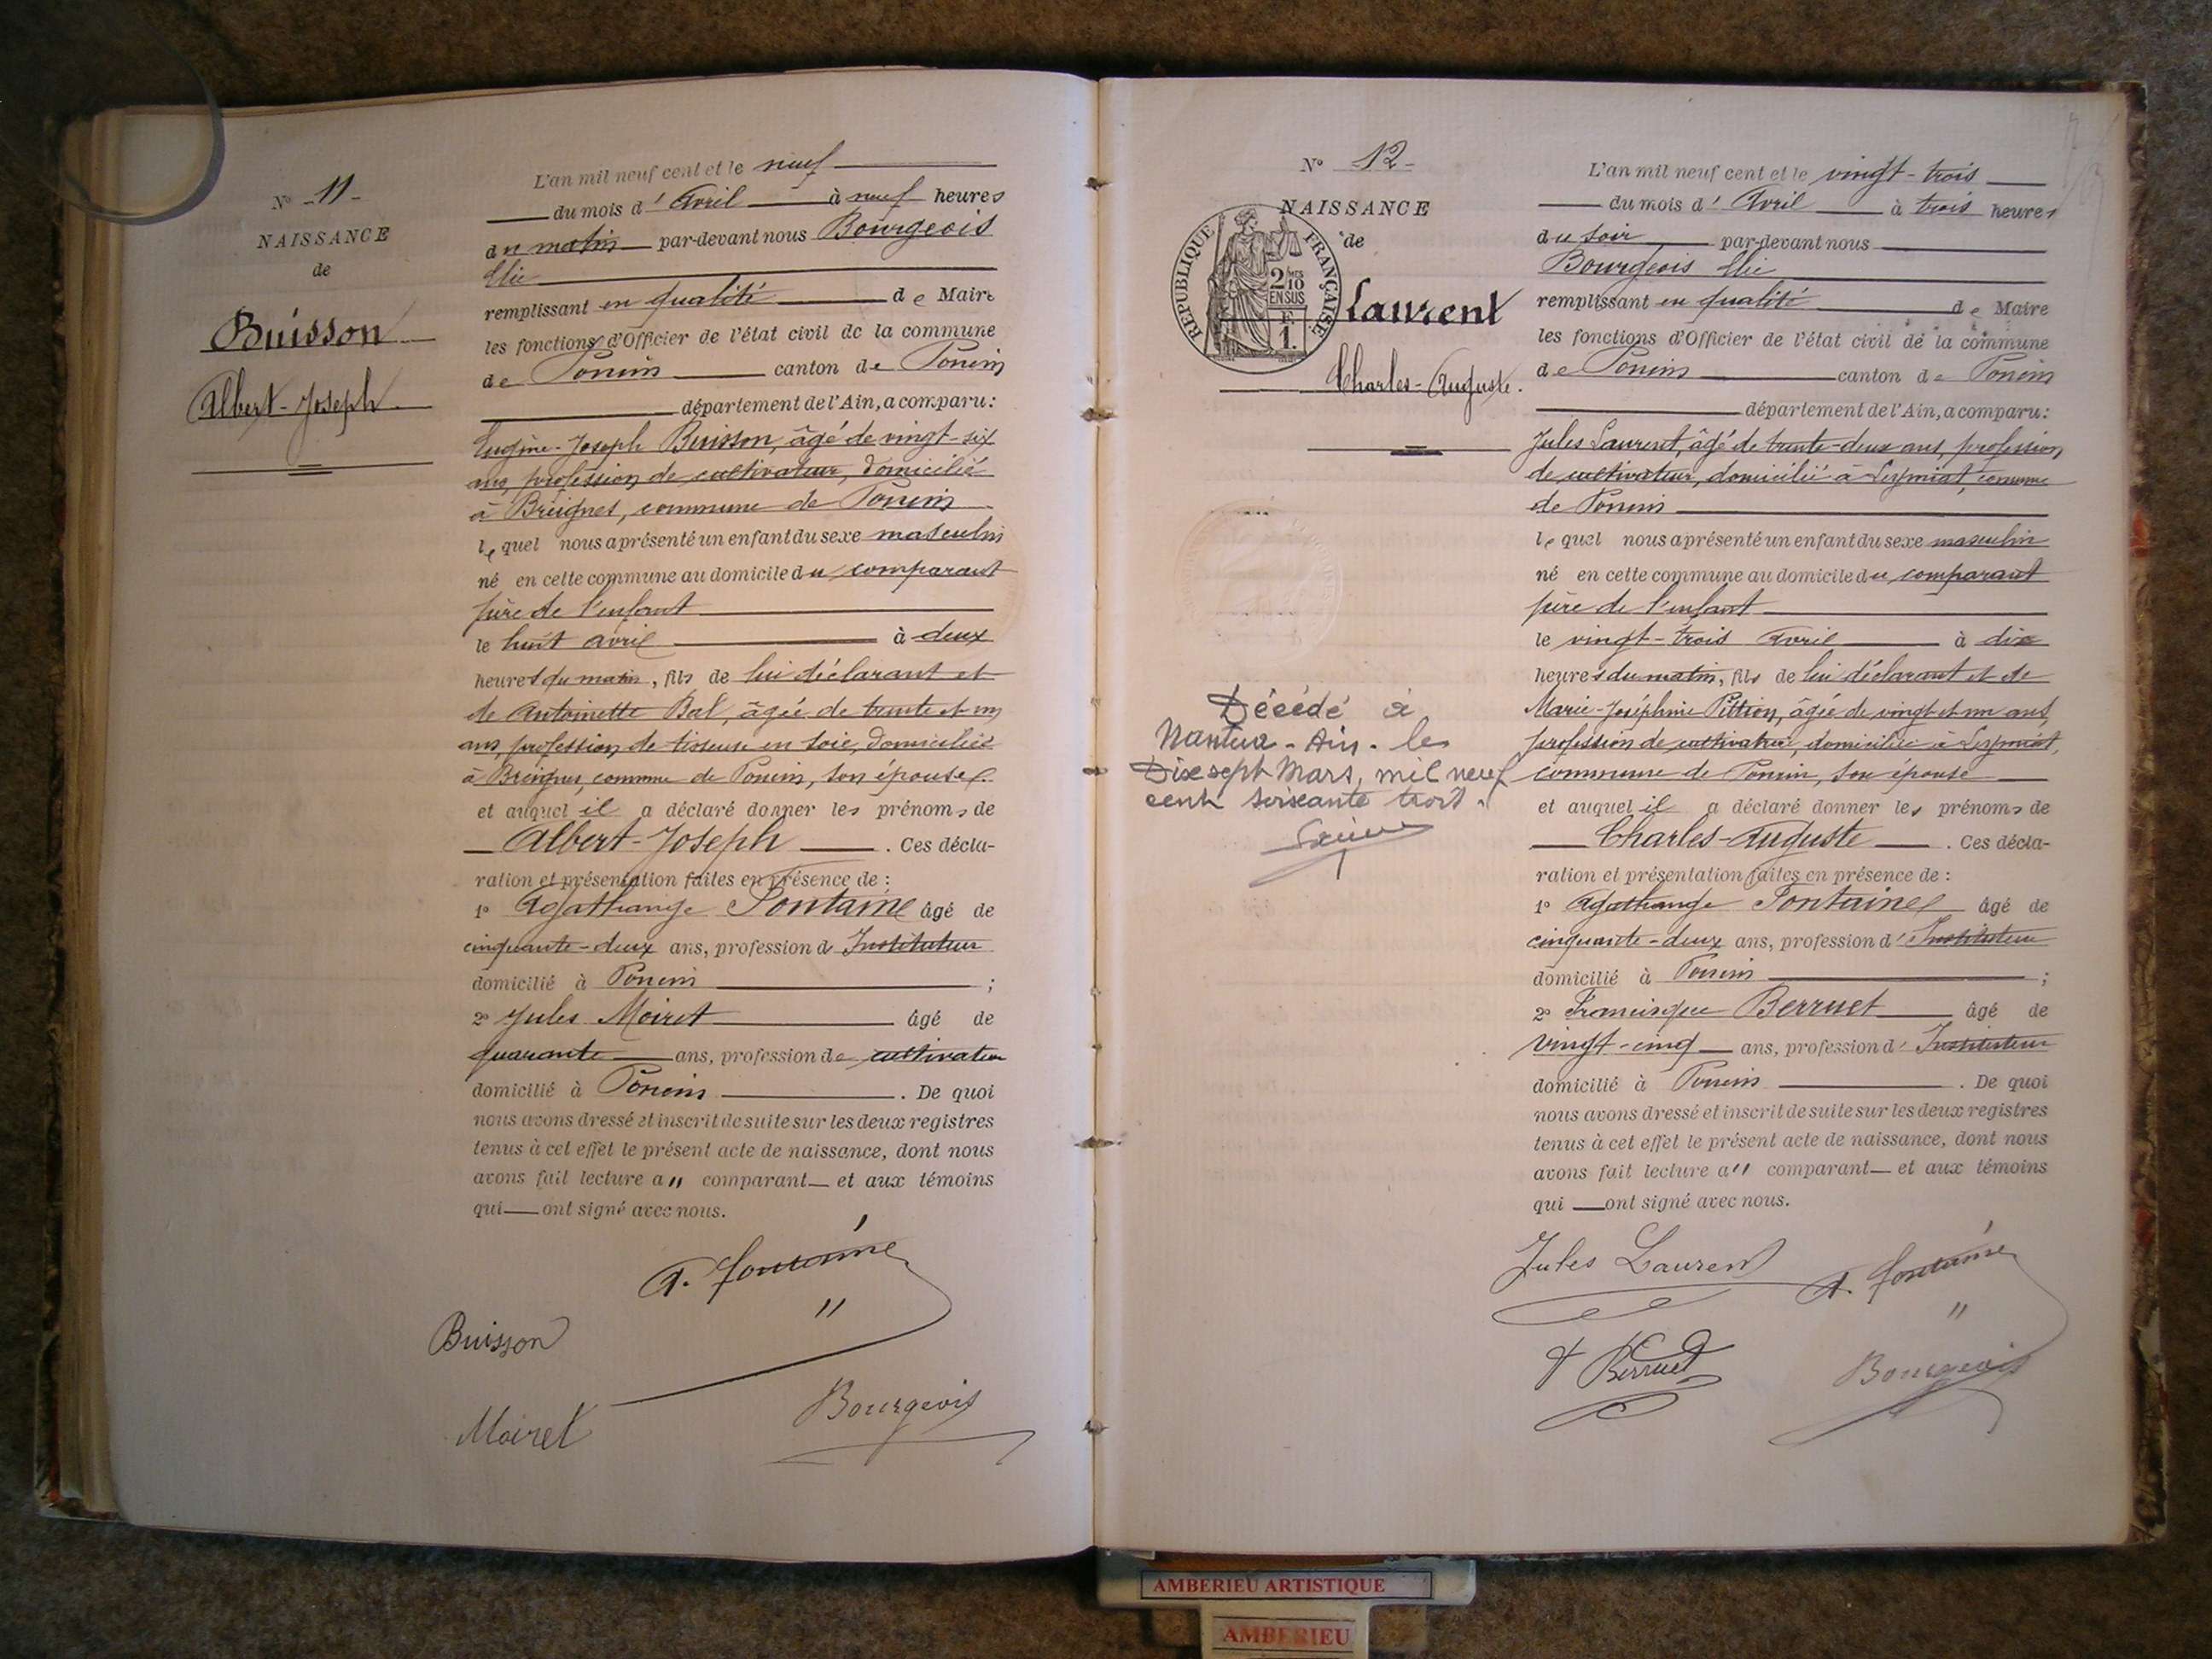 N° 11
NAISSANCE
de
Buisson
Albert-Joseph
L'an mil neuf cent et le neuf
du mois d' Avril à neuf heures
du matin par-devant nous Bourgeois
Elie
remplissant en qualité de Maire
les fonctions d'Officier de l'état civil de la commune
de Poncin canton de Poncin
département de l'Ain, a comparu:
Eugène-Joseph Buisson, âgé de vingt-six
ans, profession de cultivateur, domicilié
à Breignes, commune de Poncin
lequel nous a présenté un enfant du sexe masculin
né en cette commune au domicile du comparant
père de l'enfant
le huit avril à deux
heures du matin, fils de lui déclarant et
de Antoinette Bal, âgée de trente et un
ans, profession de tisseuse en soie, domiciliée
à Breignes, commune de Poncin, son épouse
et auquel il a déclaré donner les prénoms de
Albert-Joseph. Ces décla-
ration et présentation faites en présence de :
1° Agathange Fontaine âgé de
cinquante-deux ans, profession d Instituteur
domicilié à Poncin ;
2° Jules Moiret âgé de
quarante ans, profession de cultivateur
domicilié à Poncin . De quoi
nous avons dressé et inscrit de suite sur les deux registres
tenus à cet effet le présent acte de naissance, dont nous
avons fait lecture au comparant et aux témoins
qui ont signé avec nous.
A. Fontaine
Buisson
Bourgeois
Moiret
N° 12
NAISSANCE
de
RÉPUBLIQUE FRANÇAISE
2/10 EN SUS
F.
1.
Laurent
Charles-Auguste.
Décédé à
Nantua - Ain - le
Dix sept Mars, mil neuf
cent soixante trois.
L'an mil neuf cent et le vingt-trois
du mois d' Avril à trois heures
du soir par-devant nous
Bourgeois Elie
remplissant en qualité de Maire
les fonctions d'Officier de l'état civil de la commune
de Poncin canton de Poncin
département de l'Ain, a comparu:
Jules Laurent, âgé de trente-deux ans, profession
de cultivateur, domicilié à Leymiat, commune
de Poncin
lequel nous a présenté un enfant du sexe masculin
né en cette commune au domicile du comparant
père de l'enfant
le vingt-trois Avril à dix
heures du matin, fils de lui déclarant et de
Marie-Joséphine Pittion, âgée de vingt et un ans,
profession de cultivatrice, domiciliée à Leymiat,
commune de Poncin, son épouse
et auquel il a déclaré donner les prénoms de
Charles-Auguste. Ces décla-
ration et présentation faites en présence de :
1° Agathange Fontaine âgé de
cinquante-deux ans, profession d' Instituteur
domicilié à Poncin ;
2° Francisque Berruet âgé de
vingt-cinq ans, profession d' Instituteur
domicilié à Poncin . De quoi
nous avons dressé et inscrit de suite sur les deux registres
tenus à cet effet le présent acte de naissance, dont nous
avons fait lecture au comparant et aux témoins
qui ont signé avec nous.
Jules Laurent A. Fontaine
F Berruet Bourgeois
AMBERIEU ARTISTIQUE
AMBERIEU